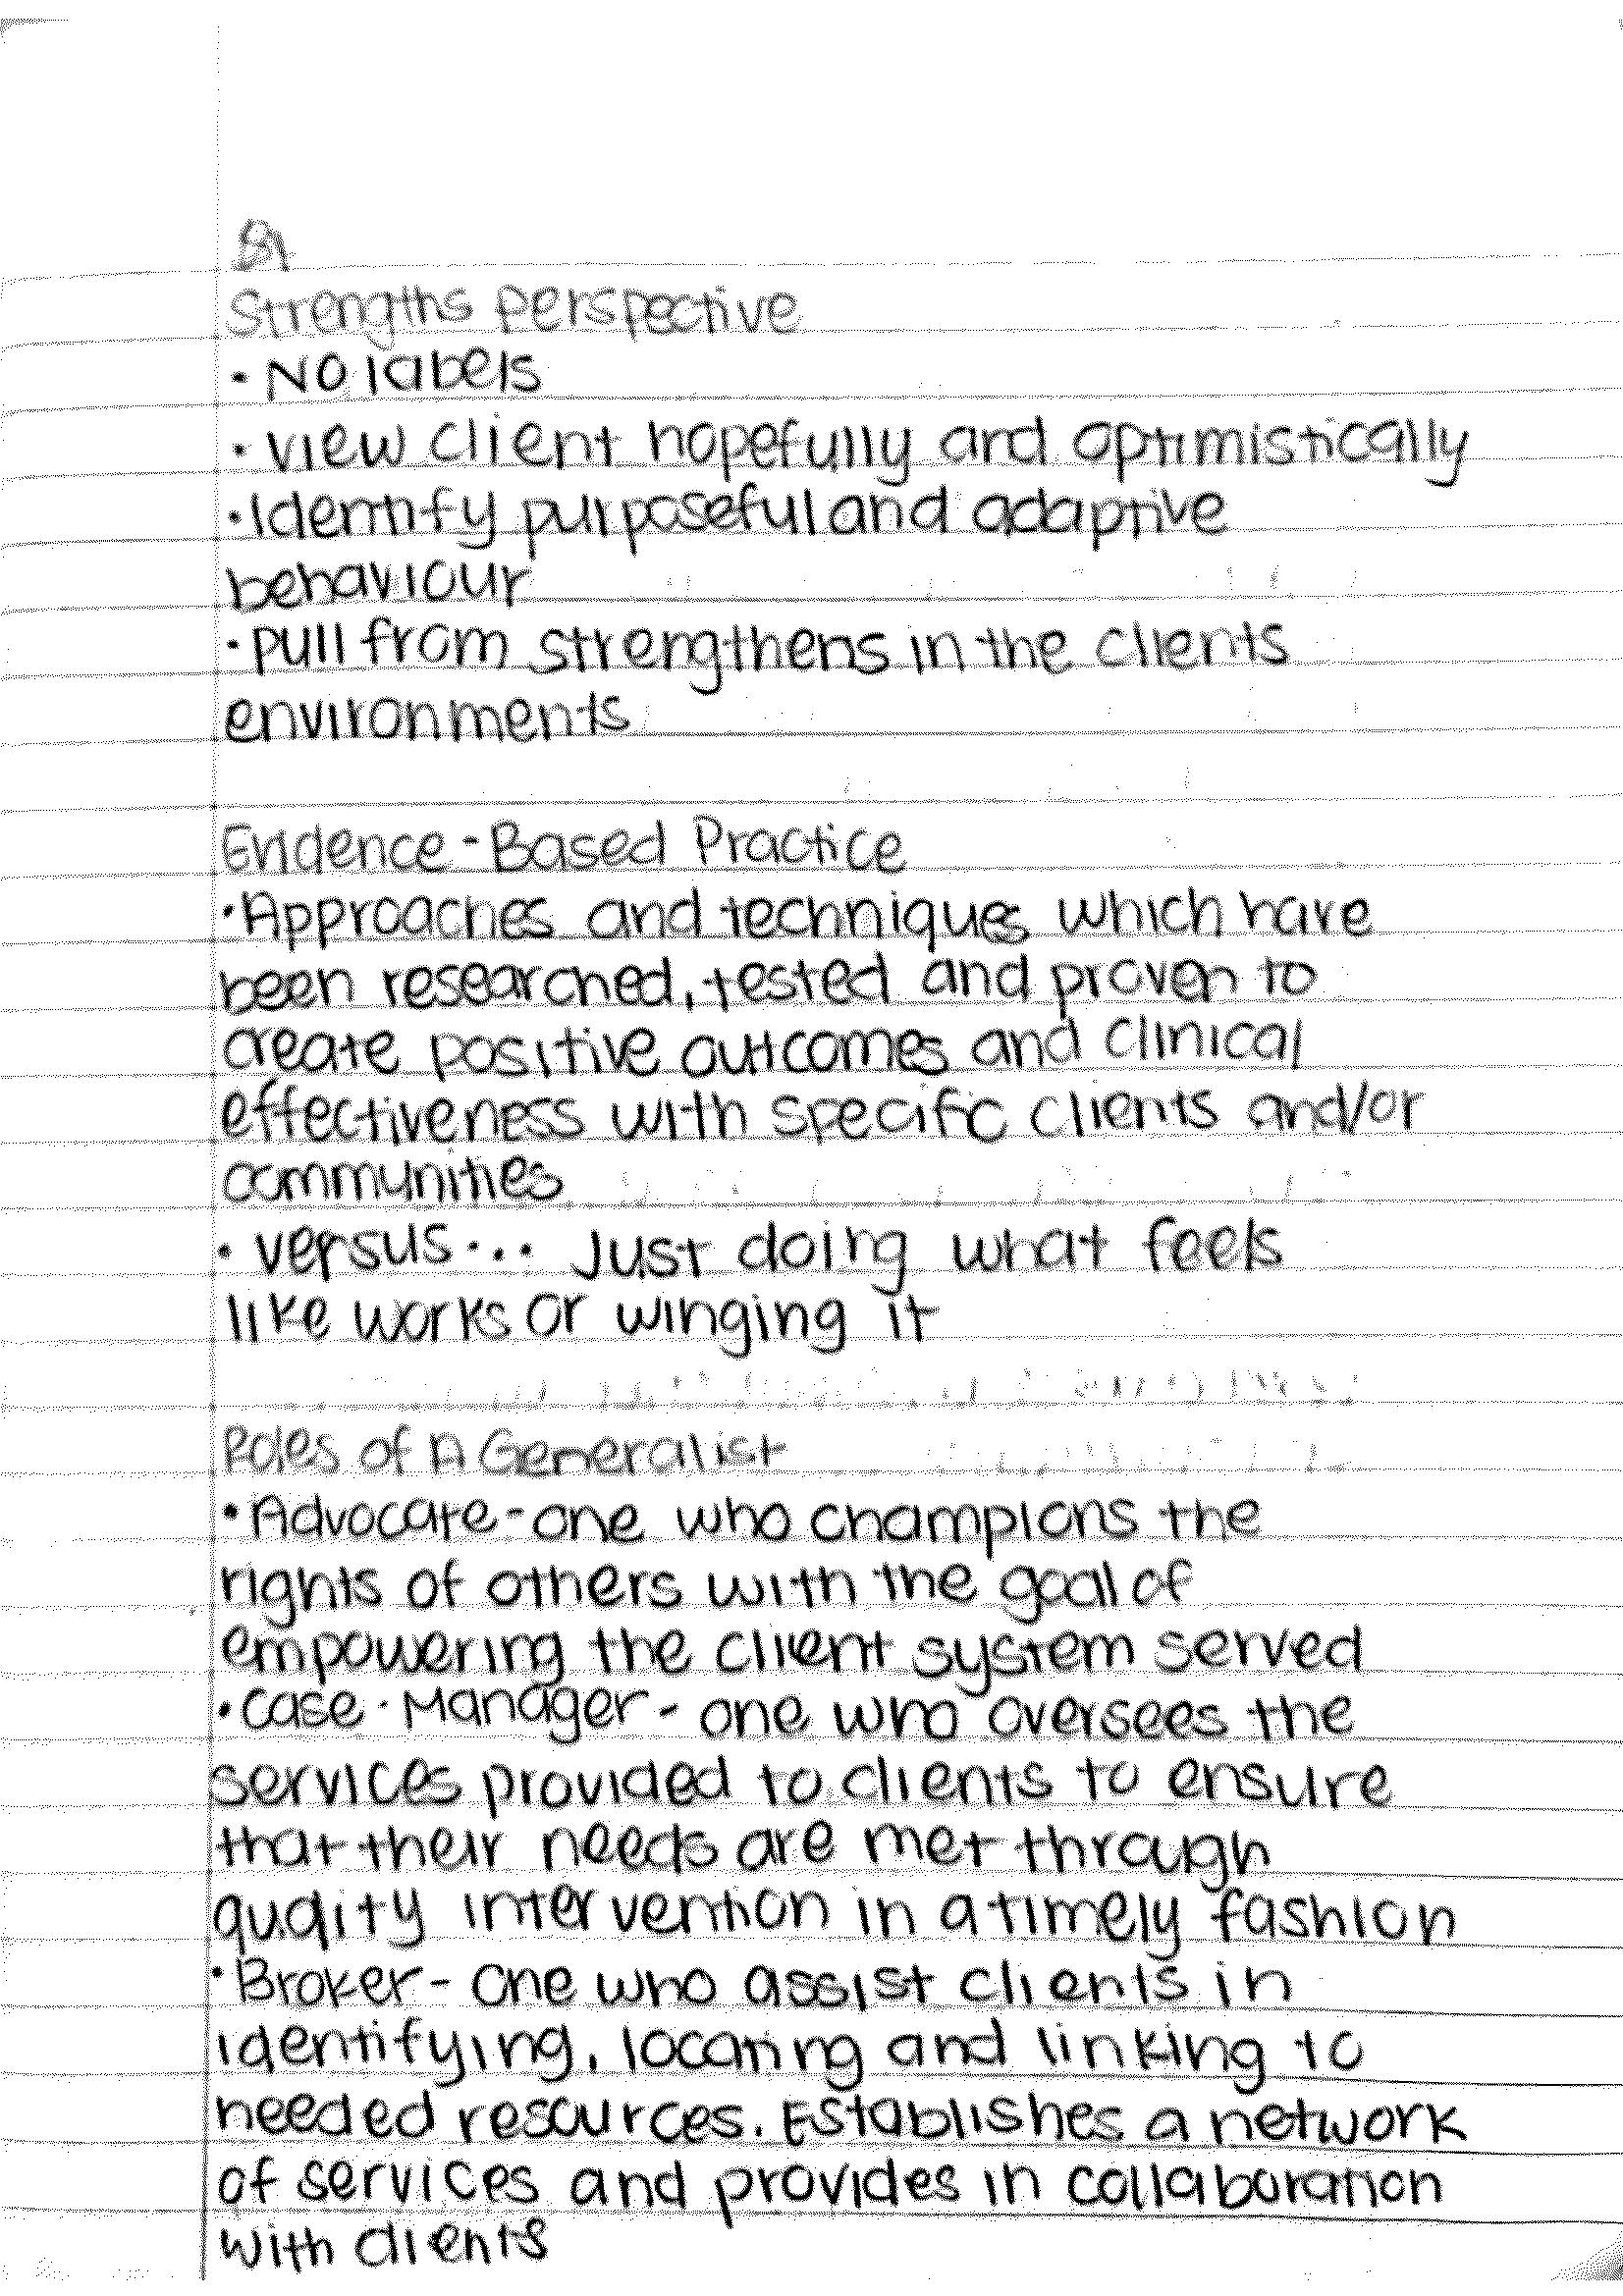 Strengths Perspective
• No labels
• view client hopefully and optimistically
• Identify purposeful and adaptive
behaviour
• pull from strengthens in the clients
environments
Evidence-Based Practice
• Approaches and techniques which have
been researched, tested and proven to
create positive outcomes and clinical
effectiveness with specific clients and/or
communities
• versus... Just doing what feels
like works or winging it
Roles of A Generalist
• Advocate - one who champions the
rights of others with the goal of
empowering the client system served
• Case-Manager - one who oversees the
services provided to clients to ensure
that their needs are met through
quality intervention in a timely fashion
• Broker - one who assist clients in
identifying, locating and linking to
needed resources. Establishes a network
of services and provides in collaboration
with clients